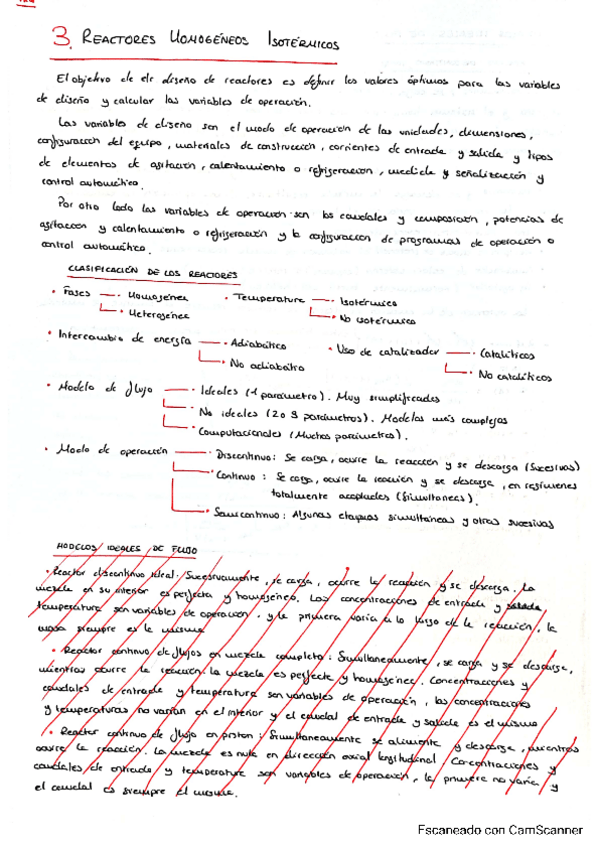 3. REACTORES HOMOGÉNEOS ISOTÉRMICOS
El objetivo de de diseño de reactores es definir los valores óptimos para las variables
de diseño y calcular las variables de operación.
Las variables de diseño son el modo de operación de las unidades, dimensiones,
configuración del equipo, materiales de construcción, corrientes de entrada y salida y tipos
de elementos de agitación, calentamiento o refrigeración, medida y señalización y
control automático.
Por otro lado las variables de operación son los caudales y composición, potencias de
agitación y calentamiento o refrigeración y la configuración de programas de operación o
control automático.
CLASIFICACIÓN DE LOS REACTORES
• Fases — • Homogénea • Temperatura — • Isotérmico
• Heterogénea • No isotérmico
• Intercambio de energía — • Adiabático • Uso de catalizador — • Catalíticos
• No adiabático • No catalíticos
• Modelo de flujo — • Ideales (1 parámetro). Muy simplificados
No ideales (2 o 3 parámetros). Modelos más complejos
Computacionales (Muchos parámetros).
• Modo de operación — • Discontinuo: Se carga, ocurre la reacción y se descarga (Sucesivas)
• Continuo: Se carga, ocurre la reacción y se descarga, en regímenes
totalmente acoplados (Simultáneas).
• Semicontinuo: Algunas etapas simultáneas y otras sucesivas
MODELOS IDEALES DE FLUJO
• Reactor discontinuo ideal: Sucesivamente, se carga, ocurre la reacción y se descarga. La
mezcla en su interior es perfecta y homogénea. Las concentraciones de entrada y salida
temperatura son variables de operación, y la primera varía a lo largo de la reacción, la
masa siempre es la misma.
• Reactor continuo de flujos en mezcla completa: Simultáneamente, se carga y se descarga,
mientras ocurre la reacción. La mezcla es perfecta y homogénea. Concentraciones y
caudales de entrada y temperatura son variables de operación, las concentraciones
y temperaturas no varían en el interior y el caudal de entrada y salida es el mismo
• Reactor continuo de flujo en piston: Simultáneamente se alimenta y descarga, mientras
ocurre la reacción. La mezcla es nula en dirección axial longitudinal. Concentraciones y
caudales de entrada y temperatura son variables de operación, la primera no varía y
el caudal es siempre el mismo.
Escaneado con CamScanner